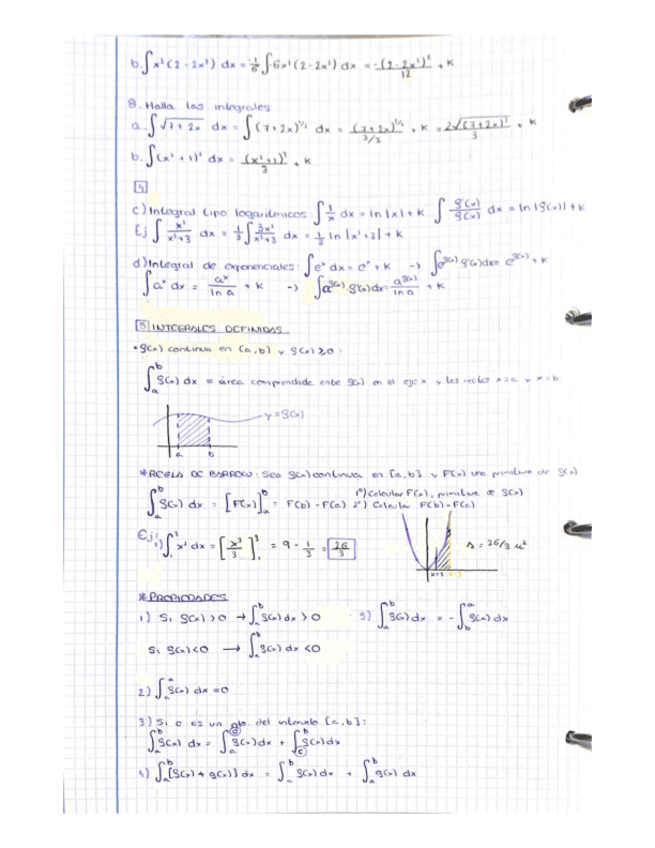 b. ∫x²(2-2x³) dx = -1/6 ∫-6x²(2-2x³) dx = -(2-2x³)²/12 + K
8. Halla las integrales
a. ∫√(7+2x) dx = ∫(7+2x)^(1/2) dx = (7+2x)^(3/2)/(3/2) + K = 2√((7+2x)³)/3 + K
b. ∫(x²+1)² dx = (x²+1)³/3 + K
c) Integral tipo logarítmicos ∫1/x dx = ln|x| + K ∫ g'(x)/g(x) dx = ln|g(x)| + K
Ej ∫ x²/(x³+3) dx = 1/3 ∫ 3x²/(x³+3) dx = 1/3 ln|x³+3| + K
d) Integral de exponenciales: ∫eˣ dx = eˣ + K -> ∫e^g(x)·g'(x)dx = e^g(x) + K
∫aˣ dx = aˣ/ln a + K -> ∫a^g(x)·g'(x)dx = a^g(x)/ln a + K
5 INTEGRALES DEFINIDAS
• g(x) continua en (a,b) y g(x) ≥ 0:
∫ₐᵇ g(x) dx = área comprendida ente g(x) en el eje x y las rectas x=a y x=b
y=g(x)
a b
*REGLA DE BARROW: Sea g(x) continua en [a,b] y F(x) una primitiva de g(x)
1º) Calcular F(x), primitiva de g(x)
∫ₐᵇ g(x) dx = [F(x)]ₐᵇ = F(b) - F(a) 2º) Calcular F(b)-F(a)
Ej:
1) ∫₁³ x² dx = [x³/3]₁³ = 9 - 1/3 = 26/3
A = 26/3 u²
x=1 x=3
*PROPIEDADES
1) Si g(x) > 0 → ∫ₐᵇ g(x) dx > 0 5) ∫ₐᵇ g(x) dx = -∫_b^a g(x) dx
Si g(x) < 0 → ∫ₐᵇ g(x) dx < 0
2) ∫ₐᵃ g(x) dx = 0
3) Si c es un pto. del intervalo [a,b]:
∫ₐᵇ g(x) dx = ∫ₐᶜ g(x)dx + ∫_c^b g(x)dx
4) ∫ₐᵇ [g(x) + g(x)] dx = ∫ₐᵇ g(x) dx + ∫ₐᵇ g(x) dx